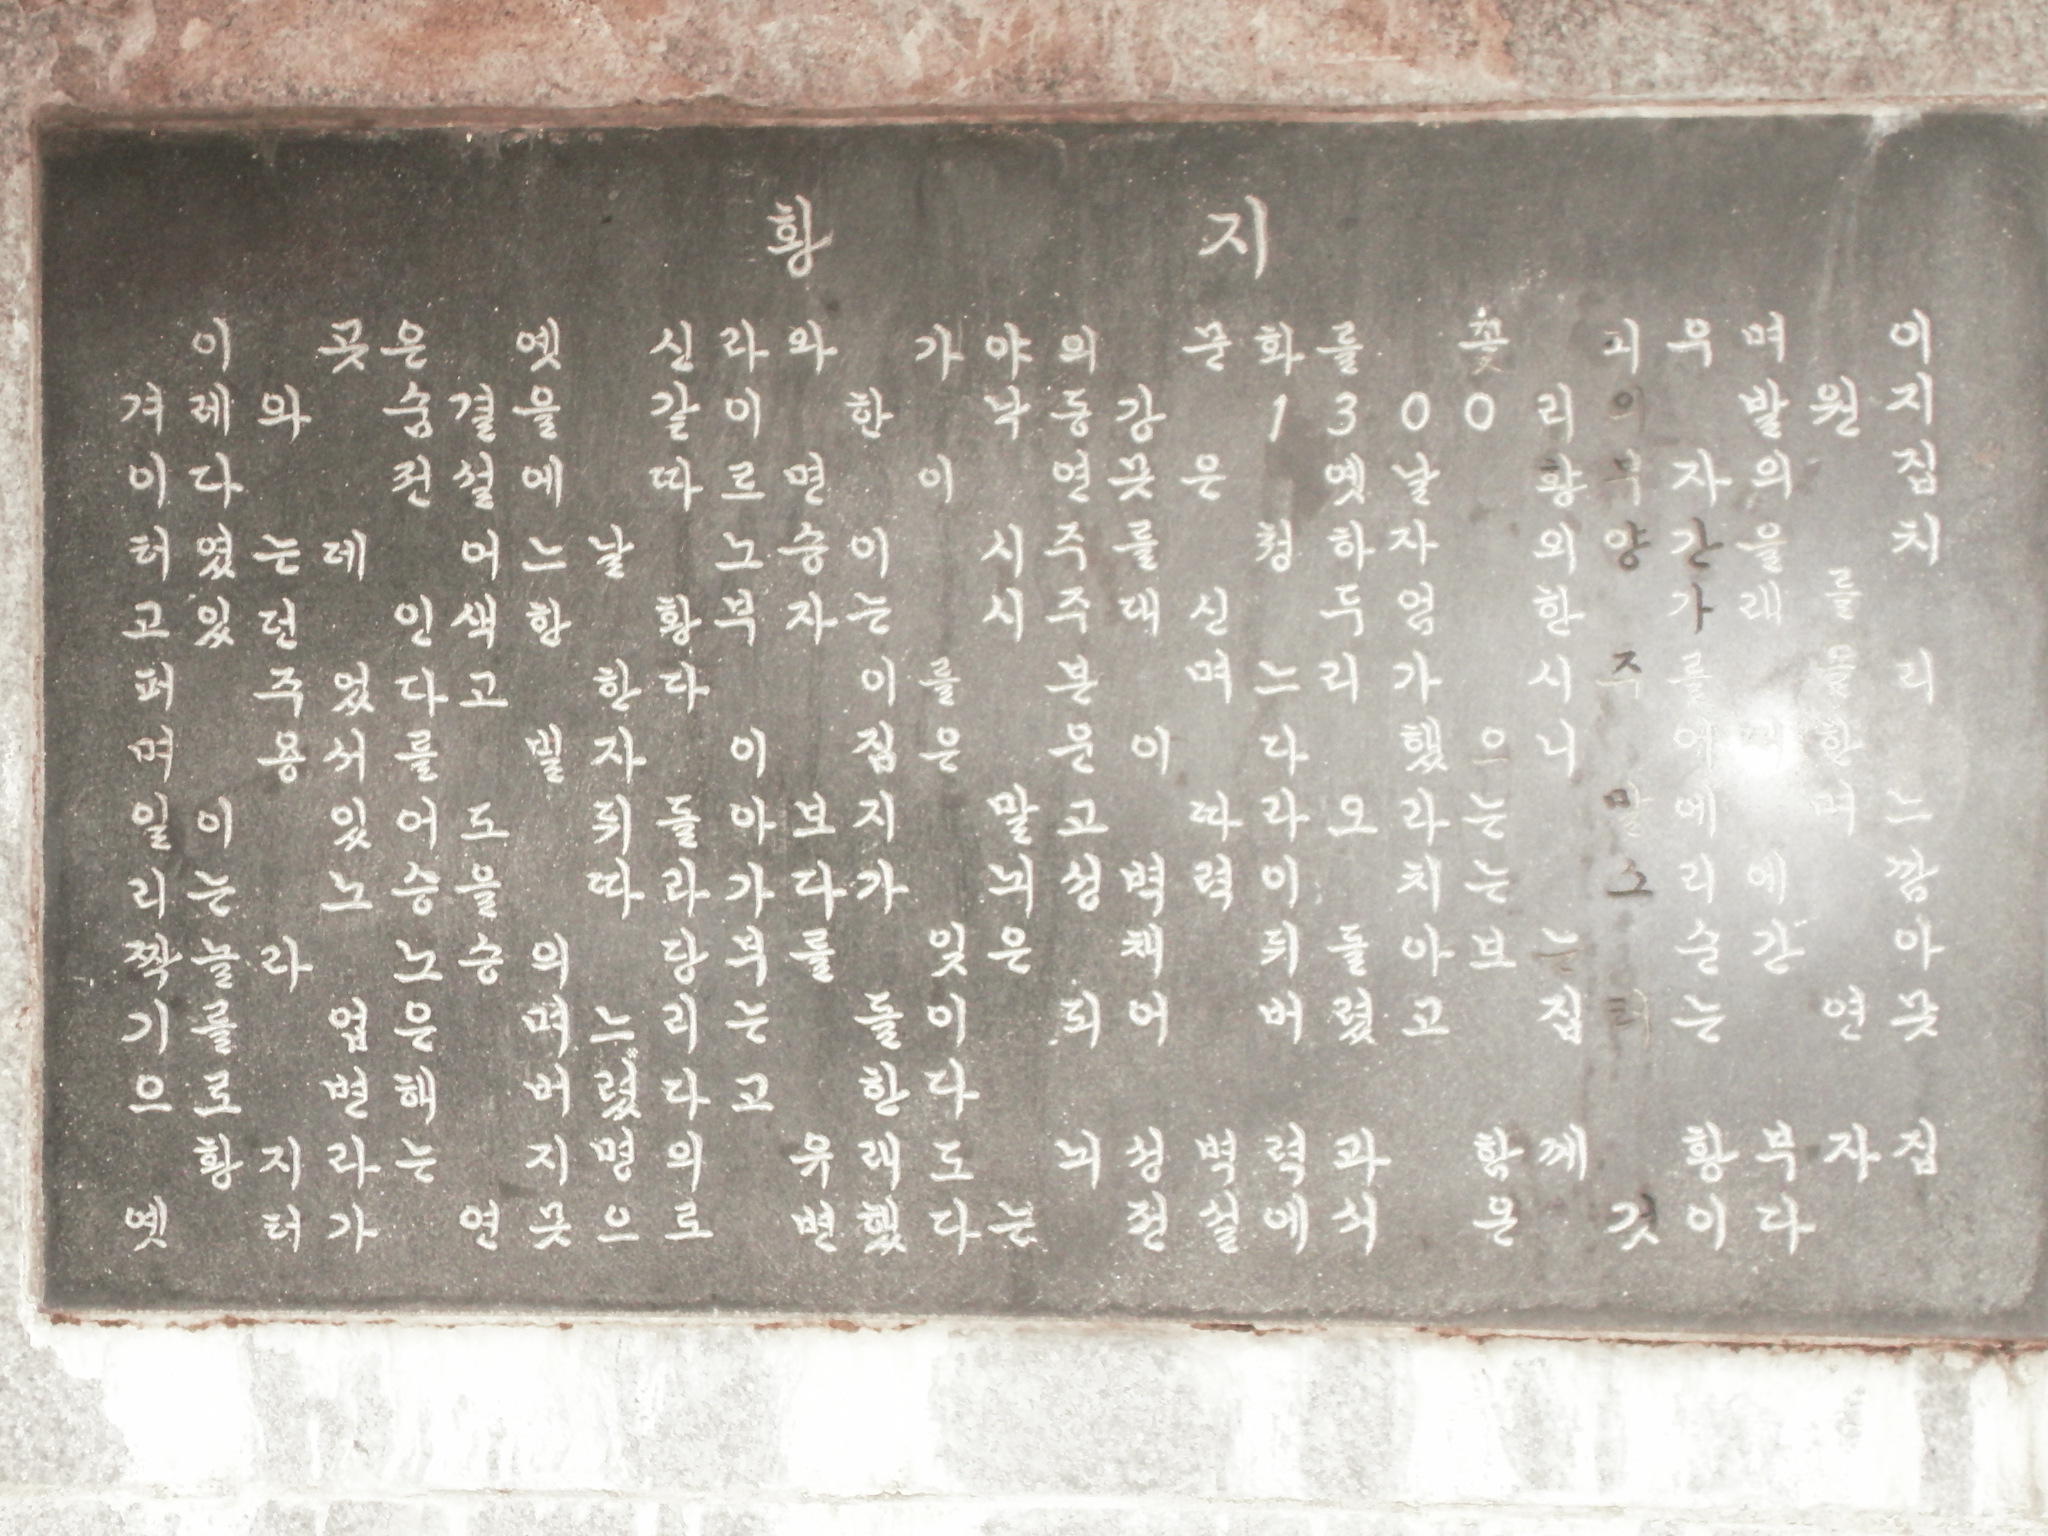 황 지
이 곳은 옛 신라와 가야의 문화를 꽃 피우며 이
겨레와 숨결을 같이 한 낙동강 1300리의 발원지
이다 전설에 따르면 이 연못은 옛날 황부자의 집
터였는데 어느날 노승이 시주를 청하자 외양간을 치
고있던 인색한 황부자는 시주대신 두엄 한 가래를
퍼 주었다고 한다 이를 본 며느리가 시주를
며 용서를 빌자 이 집은 운이 다 했으니
일이 있어도 뒤돌아보지 말고 따라오라는 말에 며느
리는 노승을 따라가다가 뇌성벽력이 치는 소리에 깜
짝놀라 노승의 당부를 잊은 채 뒤돌아보는 순간 아
기를 업은 며느리는 돌이 되어 버렸고 집터는 연못
으로 변해 버렸다고 한다
황지라는 지명의 유래도 뇌성벽력과 함께 황부자집
옛 터가 연못으로 변했다는 전설에서 온 것이다